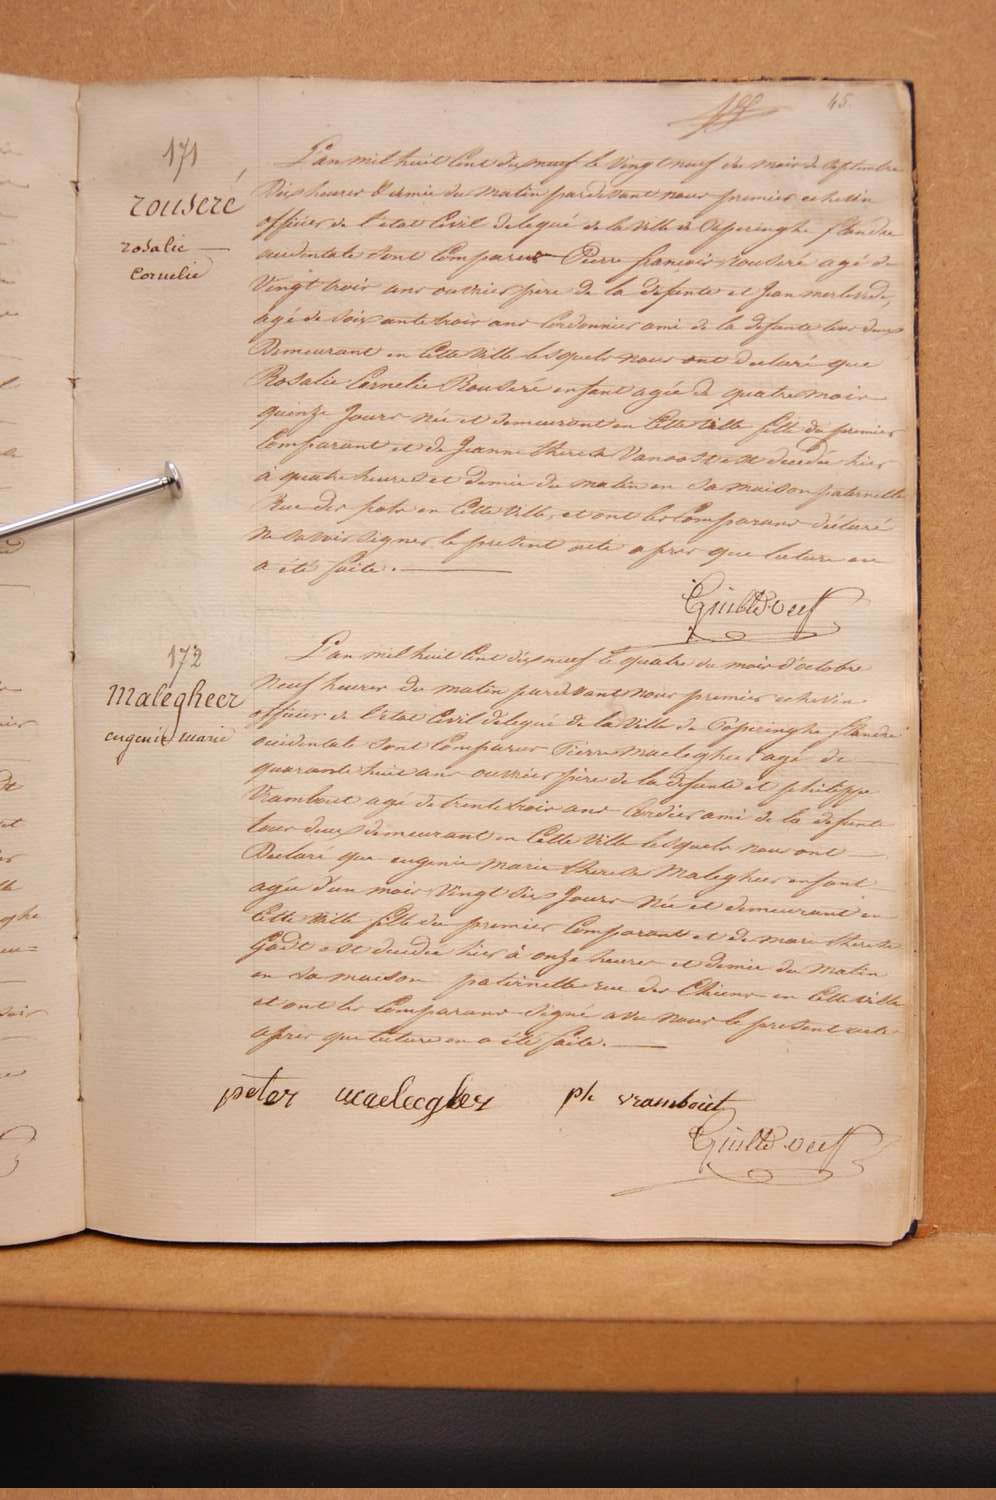 45
171
Rouseré
rosalie
Cornelie
L'an mil huit Cent dix neuf le vingt neuf du mois de Septembre
Dix heures & demie du matin pardevant nous premier echevin
officier de l'etat Civil delegué de la Ville de Poperinghe flandre
occidentale sont Comparus Pierre francois rouseré agé de
Vingt trois ans ouvrier pere de la defunte et Jean
agé de soixante trois ans Cordonnier ami de la defunte tous deux
Demeurant en Cette Ville lesquels nous ont declaré que
Rosalie Cornelie Rouseré enfant agée de quatre mois
quinze Jours née et demeurant en Cette Ville fille du premier
Comparant et de Jeanne therese Vanoost est decedée hier
à quatre heures et demie du matin en sa maison paternelle
Rue des pots en Cette Ville, et ont les Comparans déclaré
ne savoir signer le present acte apres que lecture en
a été faite.
172
Malegheer
eugenie marie
L'an mil huit Cent dix neuf le quatre du mois d'octobre
Neuf heures du matin pardevant nous premier echevin
officier de l'etat Civil délegué de la Ville de Poperinghe flandre
occidentale sont Comparus Pierre Maeleghee agé de
quarante huit ans ouvrier père de la defunte et philippe
Vrambout agé de trente trois ans Cordier ami de la defunte
tous deux demeurant en Cette Ville lesquels nous ont
Declaré que eugenie marie therese Maleghee enfant
agée d'un mois Vingt six Jours née et demeurant en
Cette Ville fille du premier Comparant et de marie therese
Gadt est decedée hier à onze heures et demie du matin
en sa maison paternelle rue des Chiens en Cette Ville
et ont les Comparans Signé avec nous le present acte
apres que lecture en a été faite.
peter maeleegheer ph vrambout